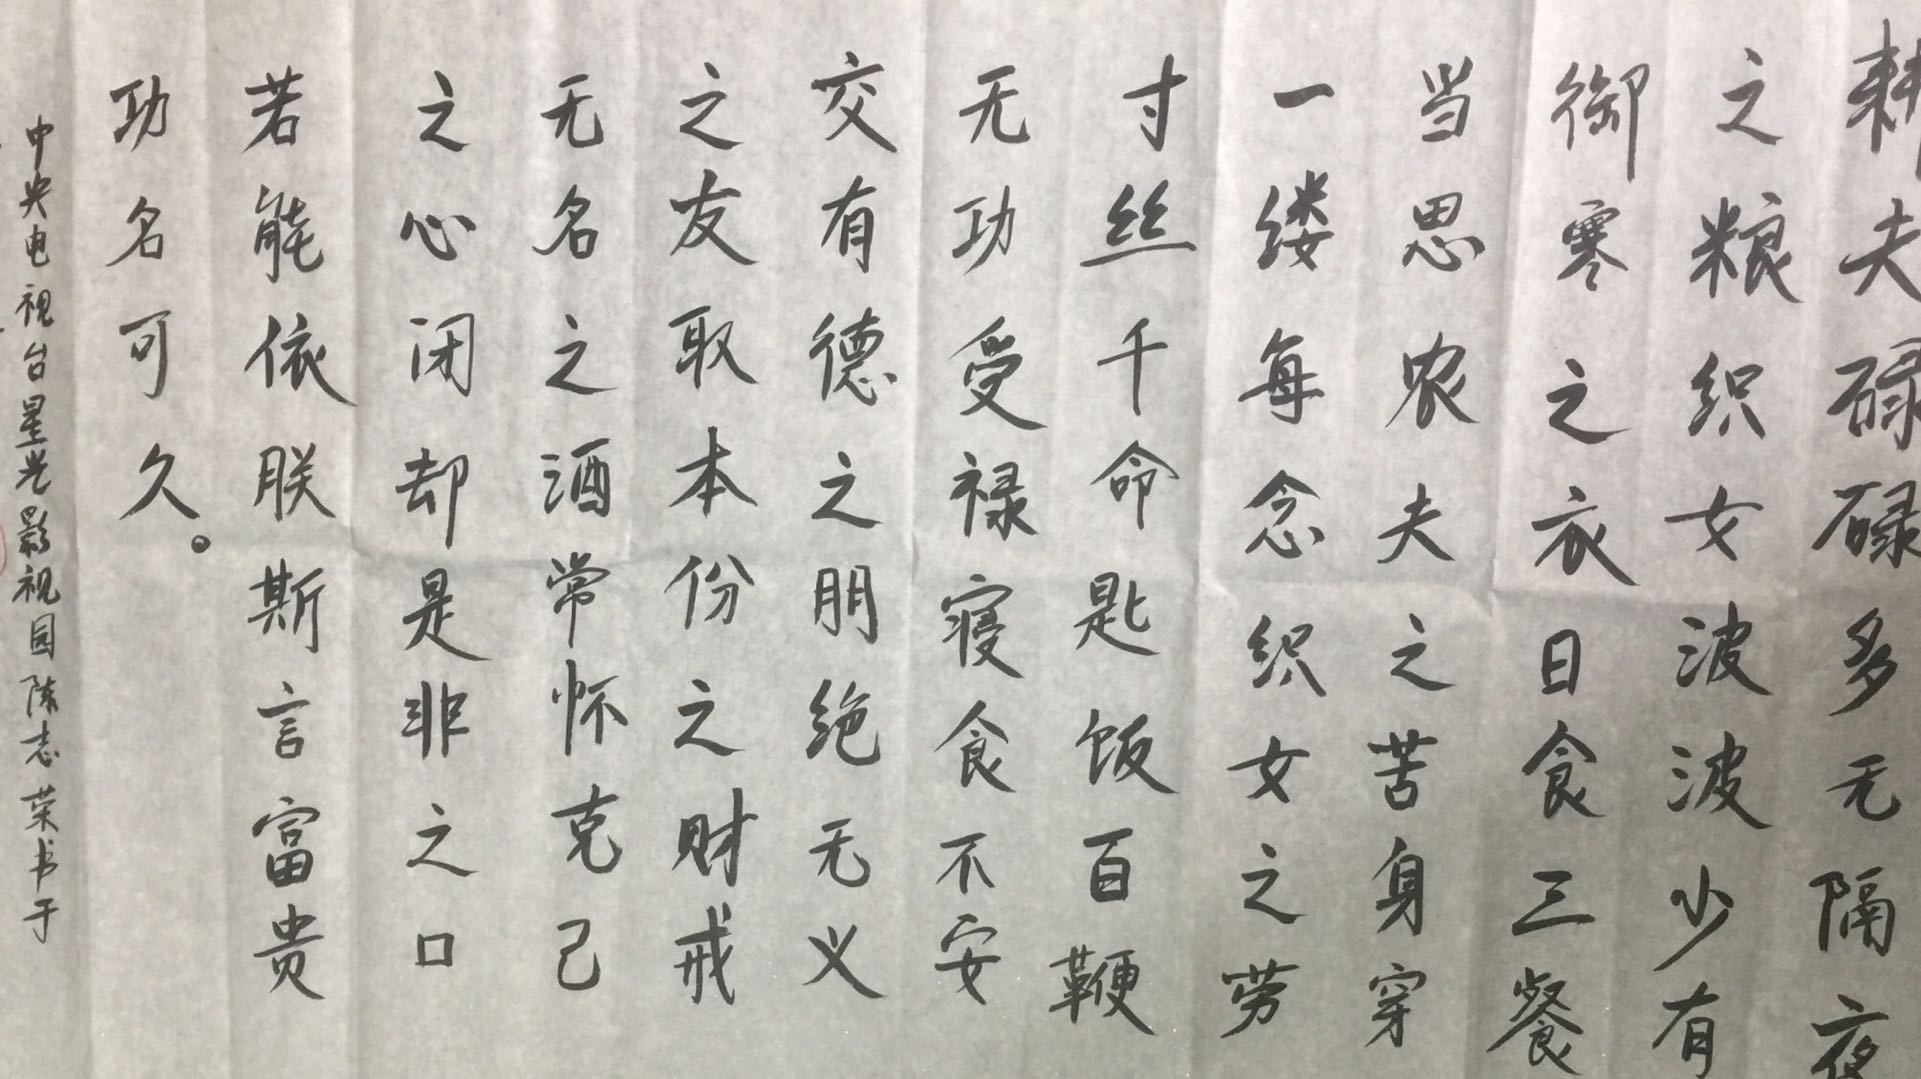 耕夫碌碌多无隔夜
之粮织女波波少有
御寒之衣日食三餐
当思农夫之苦身穿
一缕每念织女之劳
寸丝千命匙饭百鞭
无功受禄寝食不安
交有德之朋绝无义
之友取本份之财戒
无名之酒常怀克己
之心闭却是非之口
若能依朕斯言富贵
功名可久。
中央电视台星光影视园陈志荣书于